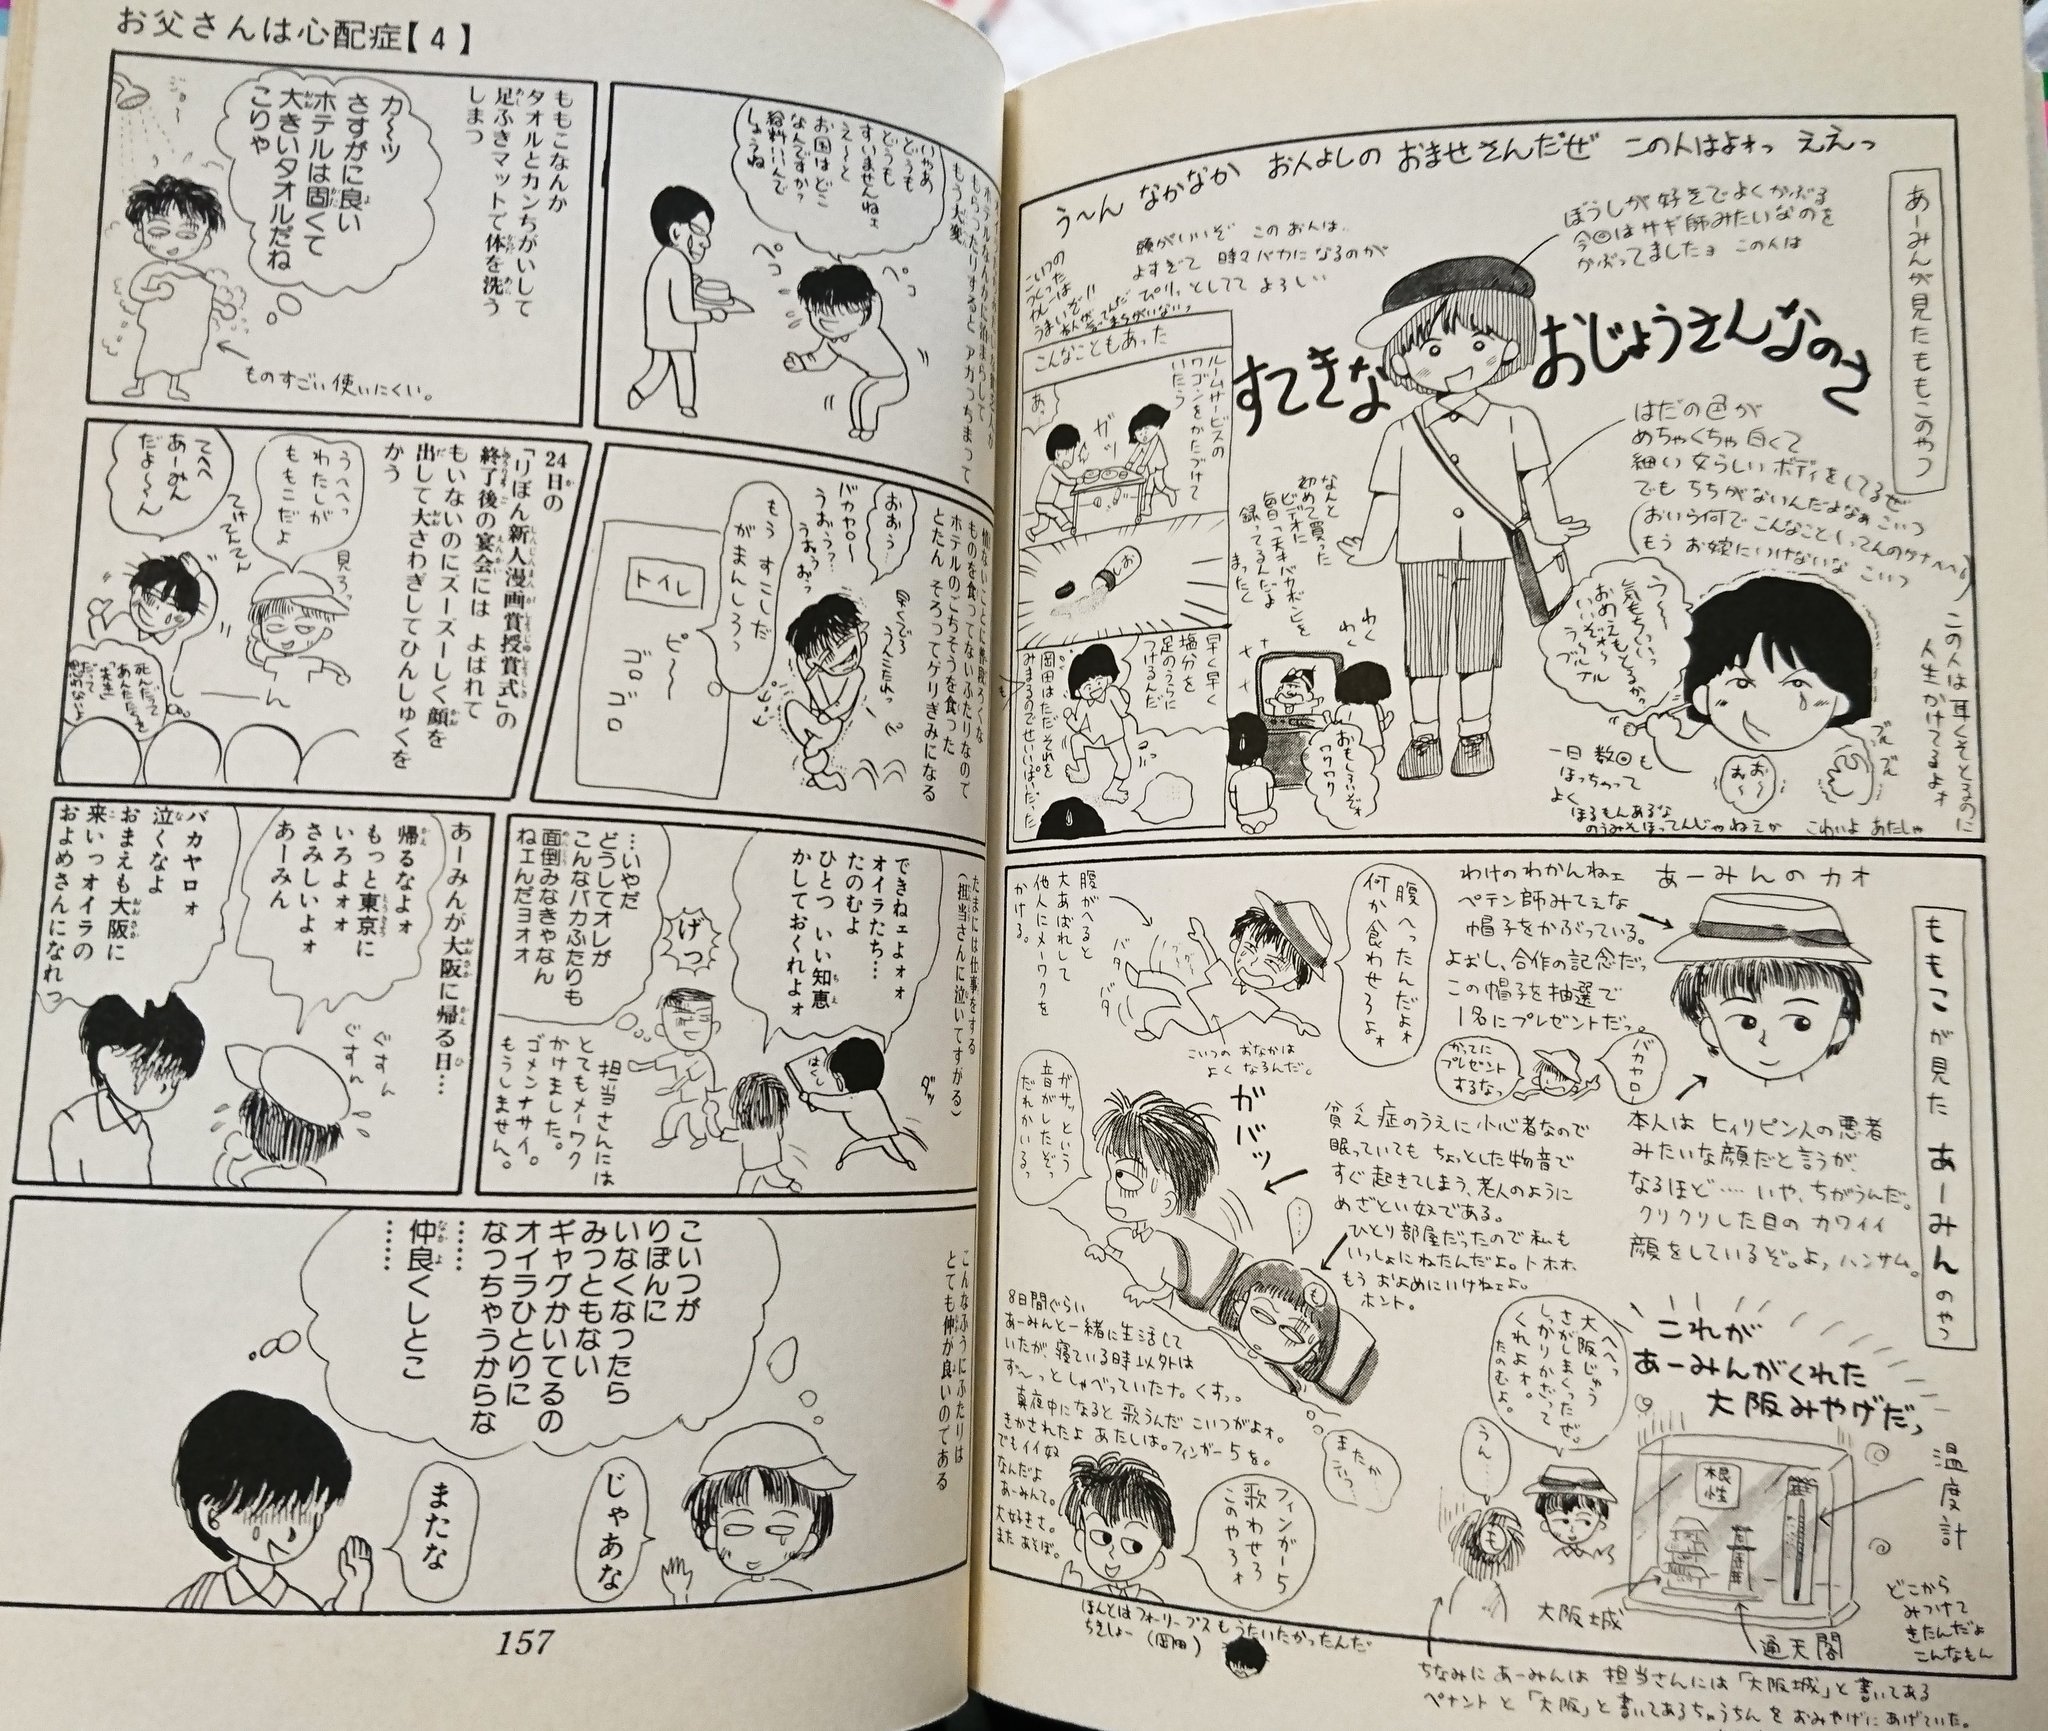 あーみんが見たももこのやつ
う〜ん なかなか お人よしの おませさんだぜ この人はよォっ ええっ
ぼうしが好きでよくかぶる
今回はサギ師みたいなのを
かぶってましたョ この人は
頭がいいぞ このお人は、
よすぎて 時々バカになるのが
ぴりっとしてて よろしい
すてきな おじょうさんなのさ
はだの色が
めちゃくちゃ白くて
細い女らしいボディをしてるぜ
でも ちちがないんだよなぁ こいつ
もう お嫁にいけないな こいつ
この人は耳くそとるのに
人生かけてるよォ
う〜
気もちいいっ
おめえもとるかっ
いいぞォ〜
う〜ブルブル
おお〜
一日 数回も
ほっちゃって
よく
のうみそほってんじゃねえか こわいよ あたしゃ
なんと
初めて買った
ビデオに
毎日、天才バカボンを
録ってるんだよ
まったく
わく
わく
おもしろいぞォ
ワクワク
こんなこともあった
ルームサービスの
ワゴンをかたづけて
いたら
あっ
ガッ
しお
早く早く
塩分を
足のうらに
つけるんだ
岡田はただそれを
みまもるのでせいいっぱいだった
ももこが見た あーみんのやつ
あーみんのカオ
わけのわかんねェ
ペテン師みてェな
帽子をかぶっている。
よおし、合作の記念だっ
この帽子を抽選で
1名にプレゼントだっ。
バカヤロー
かってに
プレゼント
するなっ
本人は ヒィリピン人の悪者
みたいな顔だと言うが、
なるほど…… いや、ちがうんだ。
クリクリした目の カワイイ
顔をしているぞ。よっ ハンサム。
腹へったんだよォ
何か食わせろよォ
腹がへると
大あばれして
他人にメーワクを
かける。
バタ
バタ
こいつの おなかは
よく なるんだ。
ガバッ
ガサッという
音がしたぞっ
だれかいるっ
貧乏症のうえに小心者なので
眠っていても ちょっとした物音で
すぐ起きてしまう、老人のように
めざとい奴である。
ひとり部屋だったので私も
いっしょにねたんだよ。トホホ
もう およめにいけねェよ。
ホント。
8日間ぐらい
あーみんと一緒に生活して
いたが、寝ている時以外は
ず〜っとしゃべっていたナ。くすっ。
真夜中になると 歌うんだ こいつがよォ。
きかされたよ あたしは。フィンガー5を。
でもイイ奴
なんだよ
あーみんて。
大好きさ。
また あそぼ。
またか
フィンガー5
歌わせろ
このやろォ
ほんとはフォーリーブスもうたいたかったんだ
ちきしょー(岡田)
へへっ
大阪じゅう
さがしまくったぜ。
しっかりかざって
くれよォ。
たのむよ。
うん…
これが
あーみんがくれた
大阪みやげだっ
根性
温度計
大阪城
通天閣
どこから
みつけて
きたんだよ
こんなもん
ちなみに あーみんは 担当さんには「大阪城」と書いてある
ペナントと「大阪」と書いてあるちょうちん をおみやげにあげていた。
お父さんは心配症【4】
ホテルなんかに泊まらして
もらったりすると アガっちまって
もう大変
いやあ
どうも
どうも
すいませんねェ
え〜と
お国はどこ
なんですか?
給料いいんで
しょうね
ペコ
ペコ
ももこなんか
タオルとカンちがいして
足ふきマットで体を洗う
しまつ
カ〜ッ
さすがに良い
ホテルは固くて
大きいタオルだね
こりゃ
ものすごい使いにくい。
情ないことに普段ろくな
ものを食ってないふたりなので
ホテルのごちそうを食った
とたん そろってゲリぎみになる
おおう…
バカヤロ〜
うおう?
うおうおっ
もう すこしだ
がまんしろっ
トイレ
ピ〜
ゴロ
ゴロ
24日の
「りぼん新人漫画賞授賞式」の
終了後の宴会には よばれて
もいないのにズーズーしく顔を
出して大さわぎしてひんしゅくを
かう
うへへっ
わたしが
ももこだよ
てへへ
あーみん
だよ〜〜ん
見ろっ
たまには仕事をする
(担当さんに泣いてすがる)
できねェよォォ
オイラたち…
たのむよ
ひとつ いい知恵
かしておくれよォ
はくし
ダッ
げっ
…いやだ
どうしてオレが
こんなバカふたりも
面倒みなきゃなん
ねェんだヨオォ
担当さんには
とてもメーワク
かけました。
ゴメンナサイ。
もうしません。
あーみんが大阪に帰る日…
帰るなよォ
もっと東京に
いろよォォ
さみしいよォ
あーみん
バカヤロォ
泣くなよ
おまえも大阪に
来いっオイラの
およめさんになれっ
ぐすん
ぐすん
こんなふうにふたりは
とても仲が良いのである
こいつが
りぼんに
いなくなったら
みっともない
ギャグかいてるの
オイラひとりに
なっちゃうからな
……
仲良くしとこ
……
じゃあな
またな
157